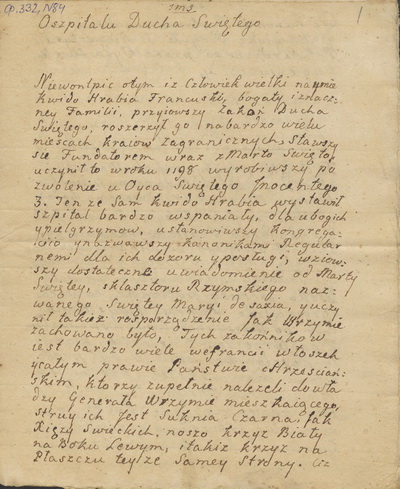 ф. 332, N84
1ms
1
Oszpitalu Ducha Swiętego
Niewontpic otym iz Człowiek wielki naimie
Kwido Hrabia Francuski, bogaty i znacz-
ney Familii, przyiowszy Zakon Ducha
Swiętego, roszerzył go i nabardzo wielu
miescach kraiow zagranicznych. Stawszy
się Fundatorem wraz z Marto Swięto,
uczynił to wroku 1198 wyrobiwszy po
zwolenie u Oyca Swiętego Jnocentego
3. Ten ze Sam Kwido Hrabia wystawił
szpital bardzo wspaniały, dla ubogich
y pielgrzymow, ustanowiwszy kongrega-
cio ynazwawszy kanonikami Regular
nemi dla ich dozoru y posługi, wziow-
szy dostateczne uwiadomienie od Marty
Swiętey, sklasztoru Rzymskiego naz-
wanego Swiętey Maryi de saxia, yuczy
nił takiez rosporządzenie Jak Wrzymie
zachowano było, Tych zakonnikow
iest bardzo wiele wefrancii włoszech
ycałym prawie Państwie Chrzescian-
skim, ktorzy zupełnie nalezeli dowła
dzy Generała Wrzymie mieszkaiącego,
stroy ich Jest Suknia Czarna, Jak
Xięzy Swieckich, noszo krzyz Biały
na Boku Lewym, itakiz krzyz na
Płaszczu teyze Samey Strony.